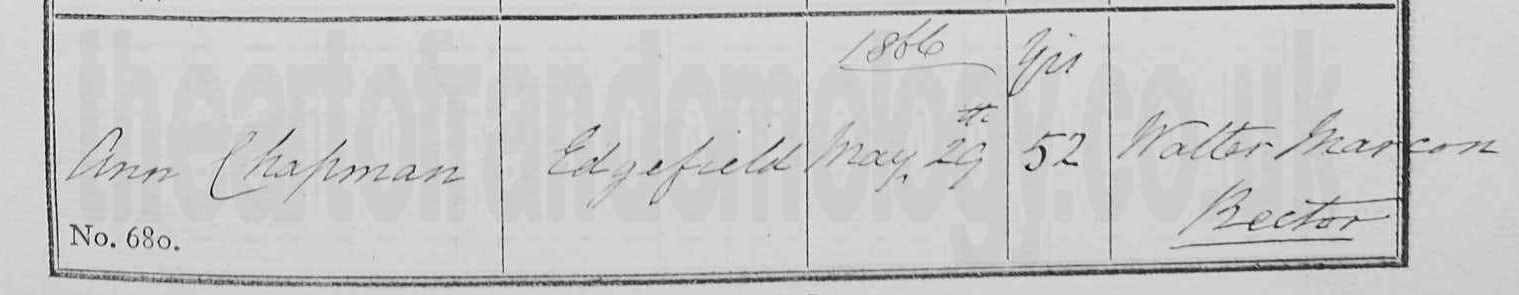 1866 Yrs
Ann Chapman Edgefield May 29th 52 Walter Marcon
Rector
No. 680.
theartofrandomology.co.uk